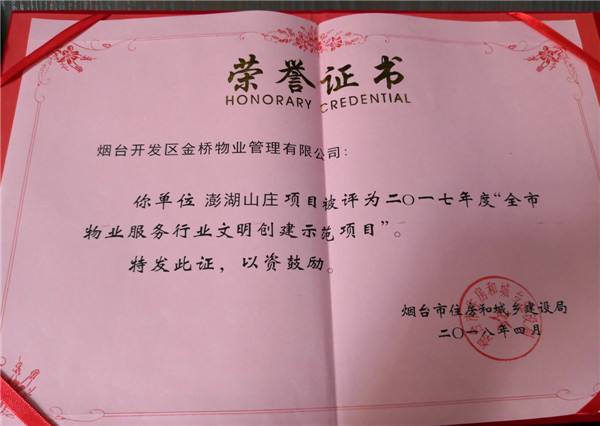 荣誉证书
HONORARY CREDENTIAL
烟台开发区金桥物业管理有限公司：
你单位 澎湖山庄 项目被评为二〇一七年度“全市
物业服务行业文明创建示范项目”。
特发此证，以资鼓励。
烟台市住房和城乡建设局
二〇一八年四月